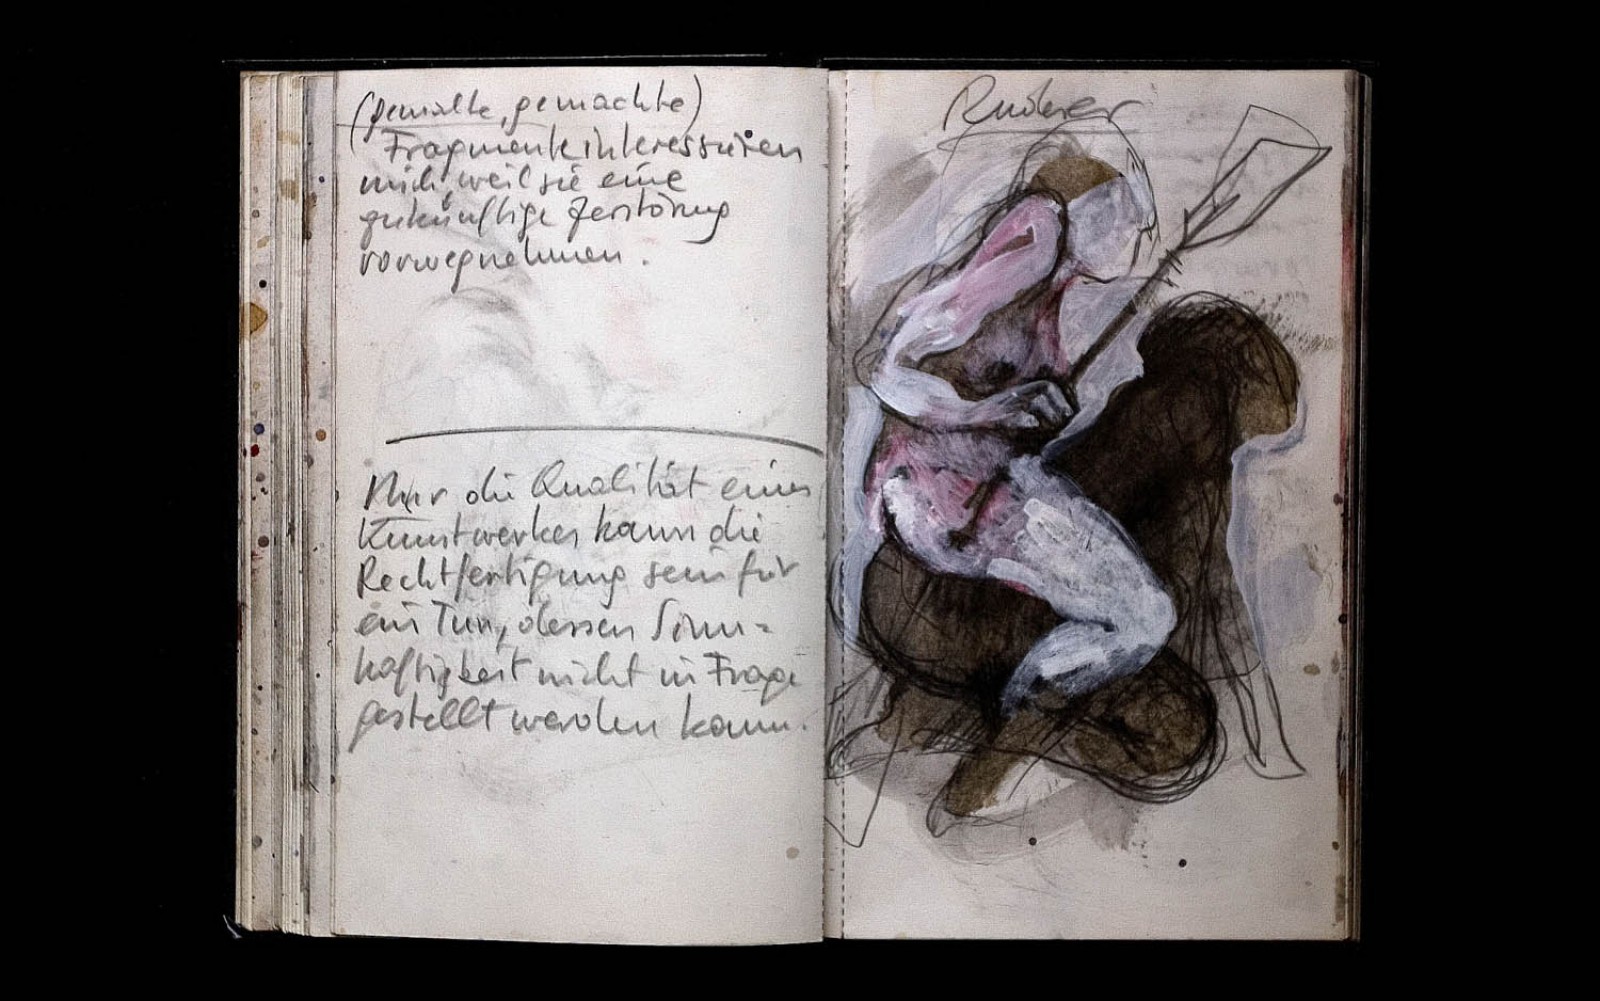 (gemalte, gemachte)
Fragmente interessieren
mich, weil sie eine
zukünftige Zerstörung
vorwegnehmen.
Nur die Qualität eines
Kunstwerkes kann die
Rechtfertigung sein für
ein Tun, dessen Sinn=
haftigkeit nicht in Frage
gestellt werden kann.
Ruderer